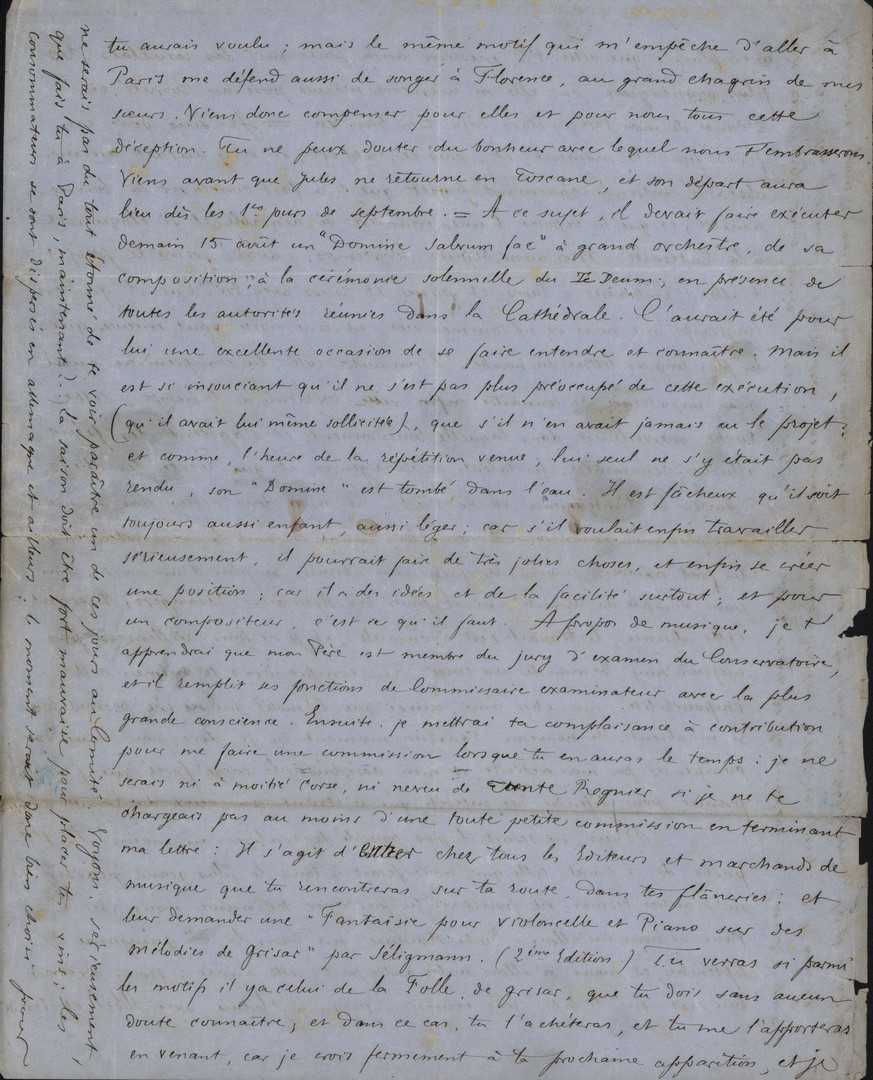 tu aurais voulu ; mais le même motif qui m'empêche d'aller à
Paris me défend aussi de songer à Florence, au grand chagrin de mes
sœurs. Viens donc compenser pour elles et pour nous tous cette
déception. Tu ne peux douter du bonheur avec lequel nous t'embrasserons.
Viens avant que Jules ne retourne en Toscane, et son départ aura
lieu dès les 1ers jours de septembre. = A ce sujet, il devait faire exécuter
demain 15 août un "Domine salvum fac" à grand orchestre, de sa
composition, à la cérémonie solennelle du Te Deum, en présence de
toutes les autorités réunies dans la Cathédrale. C'aurait été pour
lui une excellente occasion de se faire entendre et connaître. Mais il
est si insouciant qu'il ne s'est pas plus préoccupé de cette exécution,
(qu'il avait lui même sollicitée), que s'il n'en avait jamais eu le projet ;
et comme, l'heure de la répétition venue, lui seul ne s'y était pas
rendu, son "Domine" est tombé dans l'eau. Il est fâcheux qu'il soit
toujours aussi enfant, aussi léger ; car s'il voulait enfin travailler
sérieusement, il pourrait faire de très jolies choses, et enfin se créer
une position ; car il a des idées et de la facilité surtout ; et pour
un compositeur, c'est ce qu'il faut. A propos de musique, je t'
apprendrai que mon Père est membre du jury d'examen du Conservatoire,
et il remplit ses fonctions de Commissaire examinateur avec la plus
grande conscience. Ensuite, je mettrai ta complaisance à contribution
pour me faire une commission lorsque tu en auras le temps : je ne
serais ni à moitié Corse, ni neveu de tante Rognier si je ne te
chargeais pas au moins d'une toute petite commission en terminant
ma lettre : Il s'agit d'entrer chez tous les Editeurs et marchands de
musique que tu rencontreras sur ta route, dans tes flâneries ; et
leur demander une "Fantaisie pour violoncelle et Piano sur des
mélodies de Grisar" par Séligmann. (2ème Edition) Tu verras si parmi
les motifs il y a celui de la Folle, de grisar, que tu dois sans aucun
doute connaître, et dans ce cas, tu l'achèteras, et tu me l'apporteras
en venant, car je crois fermement à ta prochaine apparition, et je
ne serais pas du tout étonné de te voir paraître un de ces jours au Comité. Voyons, sérieusement,
que fais tu à Paris, maintenant ? La saison doit être fort mauvaise pour placer tes vins ; les
consommateurs se sont dispersés en allemagne et ailleurs ; le moment serait donc bien choisi pour